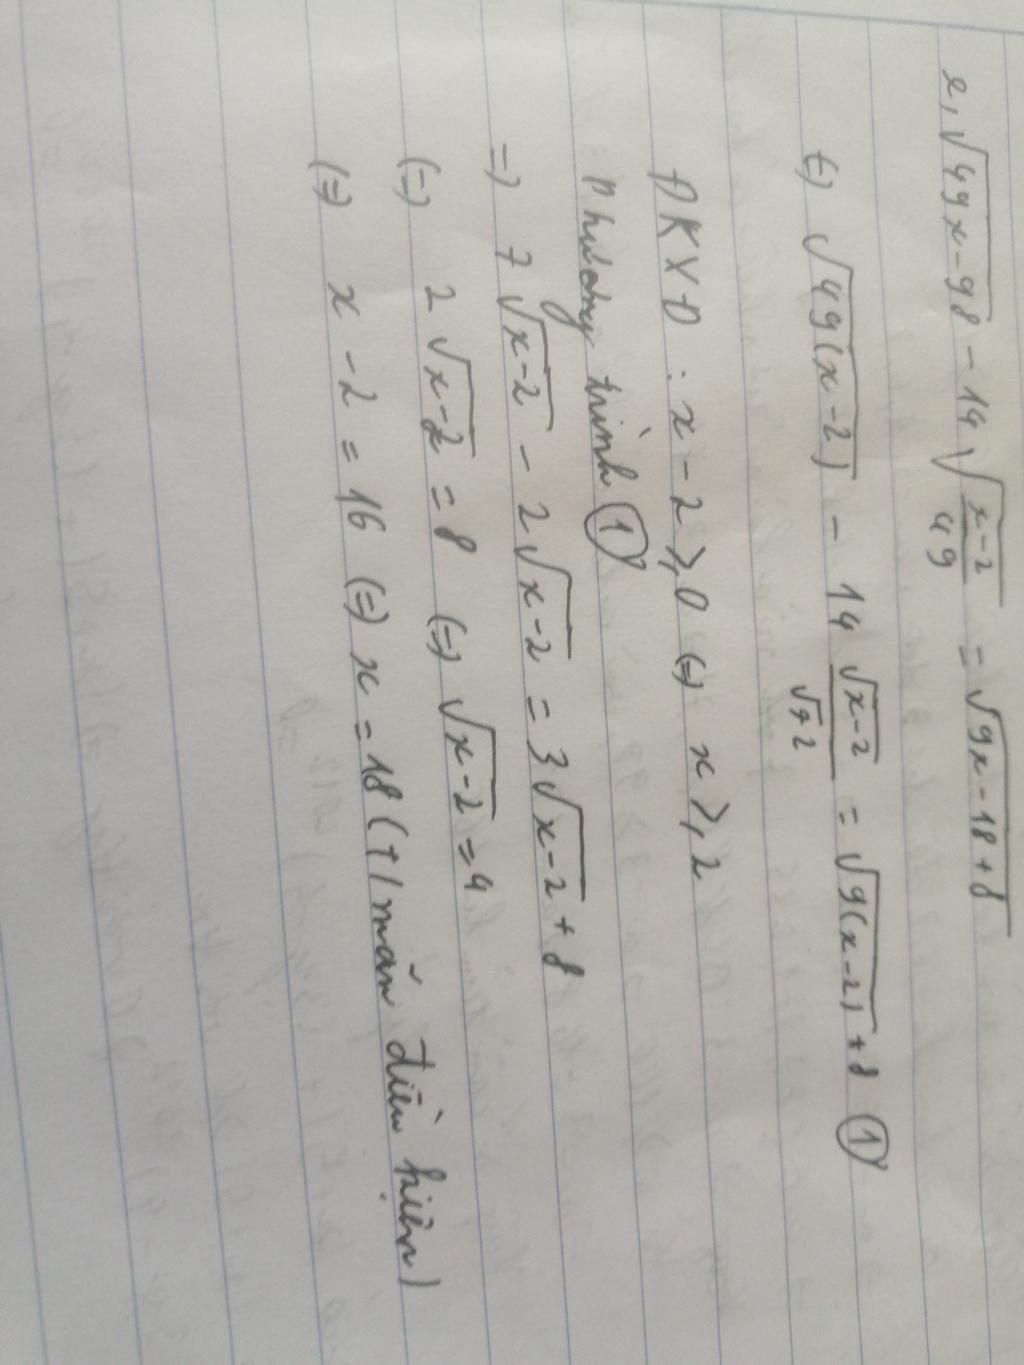 e, √49x-98 - 14√x-2/49 = √9x-18+8
(=) √49(x-2) - 14 √x-2/√72 = √9(x-2) + 8 ①
ĐKXĐ : x - 2 ⩾ 0 (=) x ⩾ 2
Phương trình ①
=) 7√x-2 - 2√x-2 = 3√x-2 + 8
(=) 2√x-2 = 8 (=) √x-2 = 4
(=) x - 2 = 16 (=) x = 18 (T/mãn điều kiện)